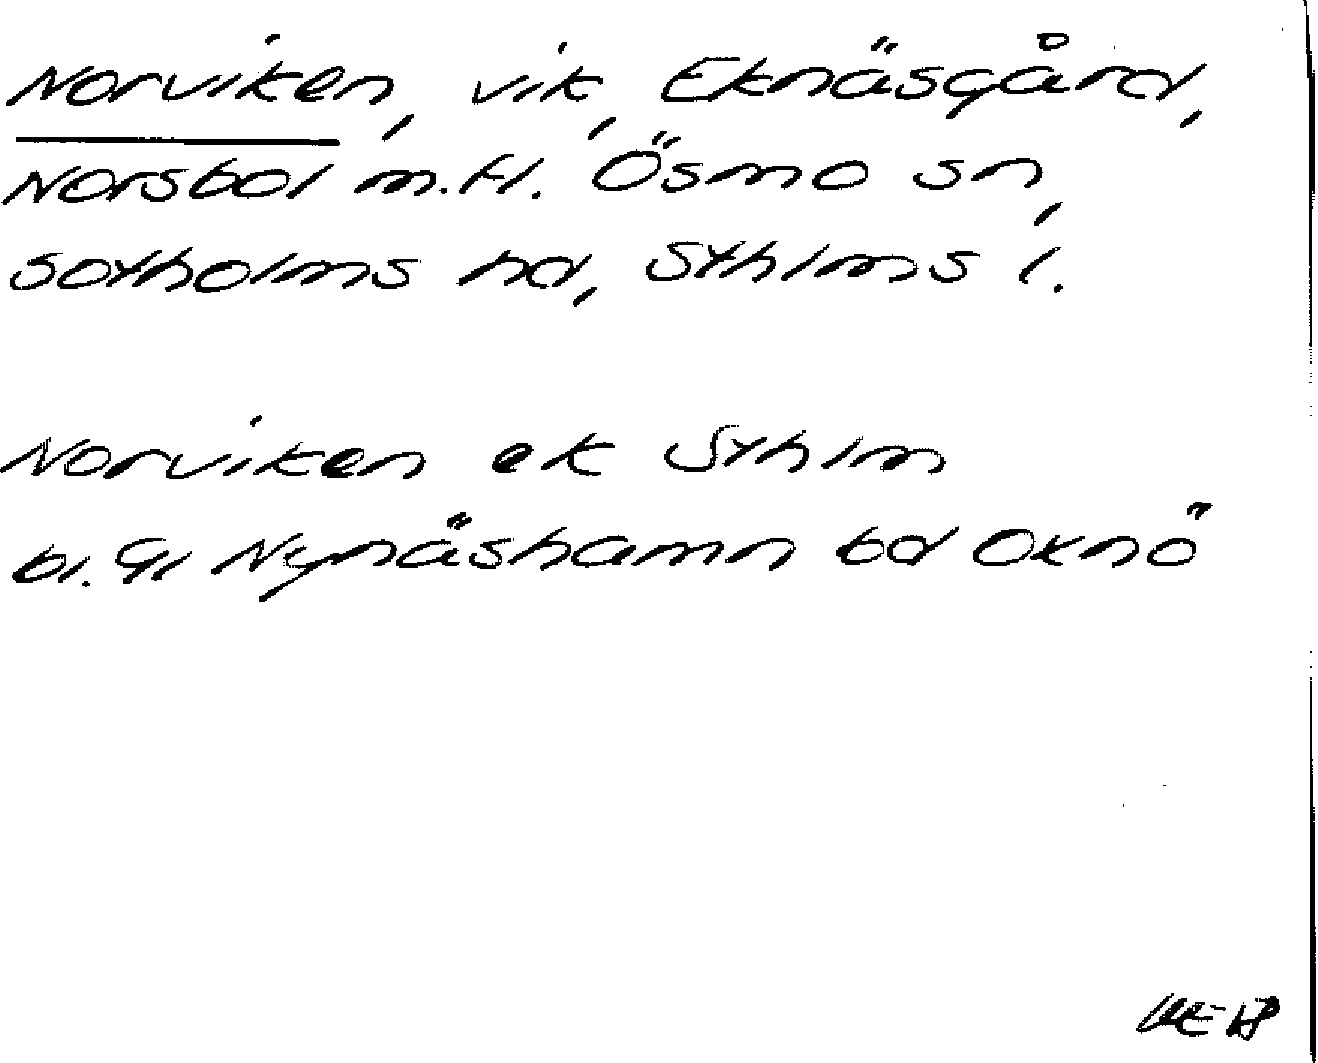 Norviken, vik, Eknäsgård,
Norsbol m.fl. Ösmo sn,
Sotholms hd, Sthlms l.
Norviken ek Sthlm
bl. 9I Nynäshamn bd Oknö